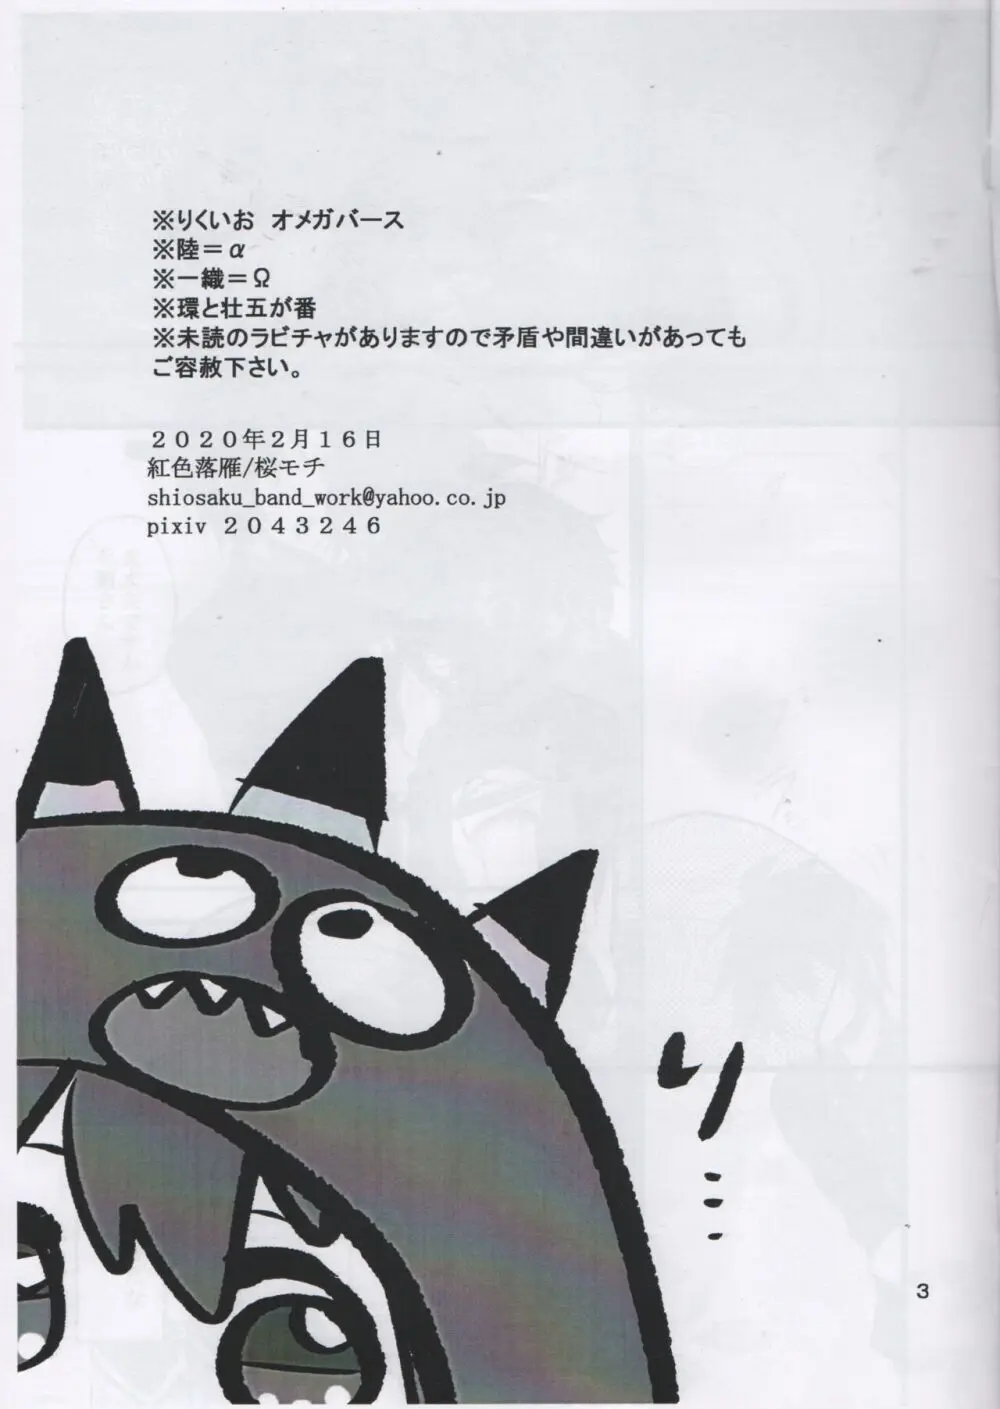 ※りくいお　オメガバース
※陸＝α
※一織＝Ω
※環と壮五が番
※未読のラビチャがありますので矛盾や間違いがあっても
ご容赦下さい。
２０２０年２月１６日
紅色落雁/桜モチ
shiosaku_band_work@yahoo.co.jp
pixiv ２０４３２４６
り…
3